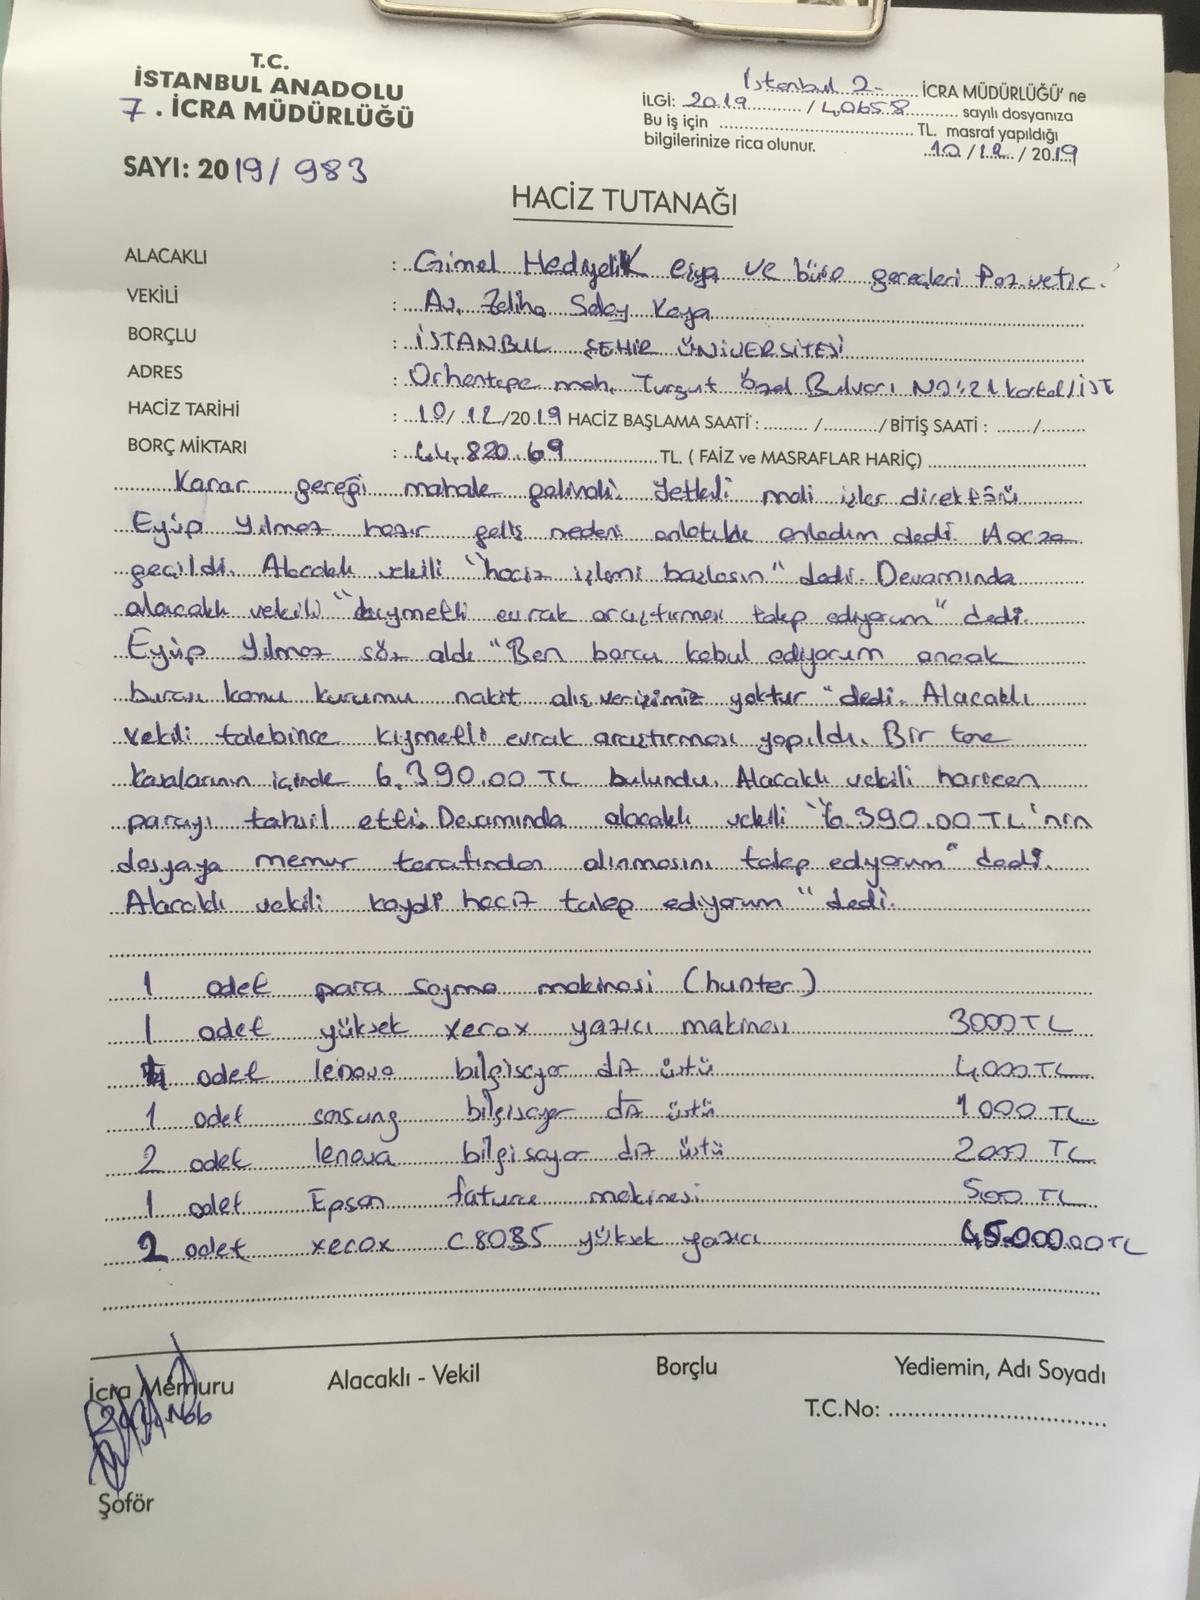 T.C.
İSTANBUL ANADOLU
7. İCRA MÜDÜRLÜĞÜ
SAYI: 2019/983
İstanbul 2. İCRA MÜDÜRLÜĞÜ' ne
İLGİ: 2019 / 40658 sayılı dosyanıza
Bu iş için ........ TL. masraf yapıldığı
bilgilerinize rica olunur. 10/12/2019
HACİZ TUTANAĞI
ALACAKLI : Gimel Hediyelik eşya ve büro gereçleri Paz.ve tic.
VEKİLİ : Av. Zeliha Kaya
BORÇLU : İSTANBUL ŞEHİR ÜNİVERSİTESİ
ADRES : Orhantepe mah. Turgut Özal Bulvarı NO:21 kartal/İST
HACİZ TARİHİ : 10/12/2019 HACİZ BAŞLAMA SAATİ : ......../......../ BİTİŞ SAATİ : ....../........
BORÇ MİKTARI : 44.820.69 TL. ( FAİZ ve MASRAFLAR HARİÇ)
Karar gereği mahale gelindi. Yetkili mali işler direktörü
Eyüp Yılmaz hazır geliş nedeni anlatıldı anladım dedi. Hacze
geçildi. Alacaklı vekili "haciz işlemi başlasın" dedi. Devamında
alacaklı vekili "kıymetli evrak araştırması talep ediyorum" dedi.
Eyüp Yılmaz söz aldı "Ben borcu kabul ediyorum ancak
burası kamu kurumu nakit alış verişimiz yoktur" dedi. Alacaklı
vekili talebince kıymetli evrak araştırması yapıldı. Bir tane
kasalarının içinde 6.390.00 TL bulundu. Alacaklı vekili haricen
parayı tahsil etti. Devamında alacaklı vekili "6.390.00 TL'nin
dosyaya memur tarafından alınmasını talep ediyorum" dedi.
Alacaklı vekili kaydi haciz talep ediyorum" dedi.
1 adet para sayma makinesi (hunter)
1 adet yüksek xerox yazıcı makinesi 3000 TL
4 adet lenovo bilgisayar diz üstü 4000 TL
1 adet samsung bilgisayar diz üstü 1000 TL
2 adet lenova bilgisayar diz üstü 2000 TL
1 adet Epson fatura makinesi 500 TL
2 adet xerox C8035 yüksek yazıcı 45.000.00 TL
İcra Memuru Alacaklı - Vekil Borçlu Yediemin, Adı Soyadı
T.C.No:
Şoför